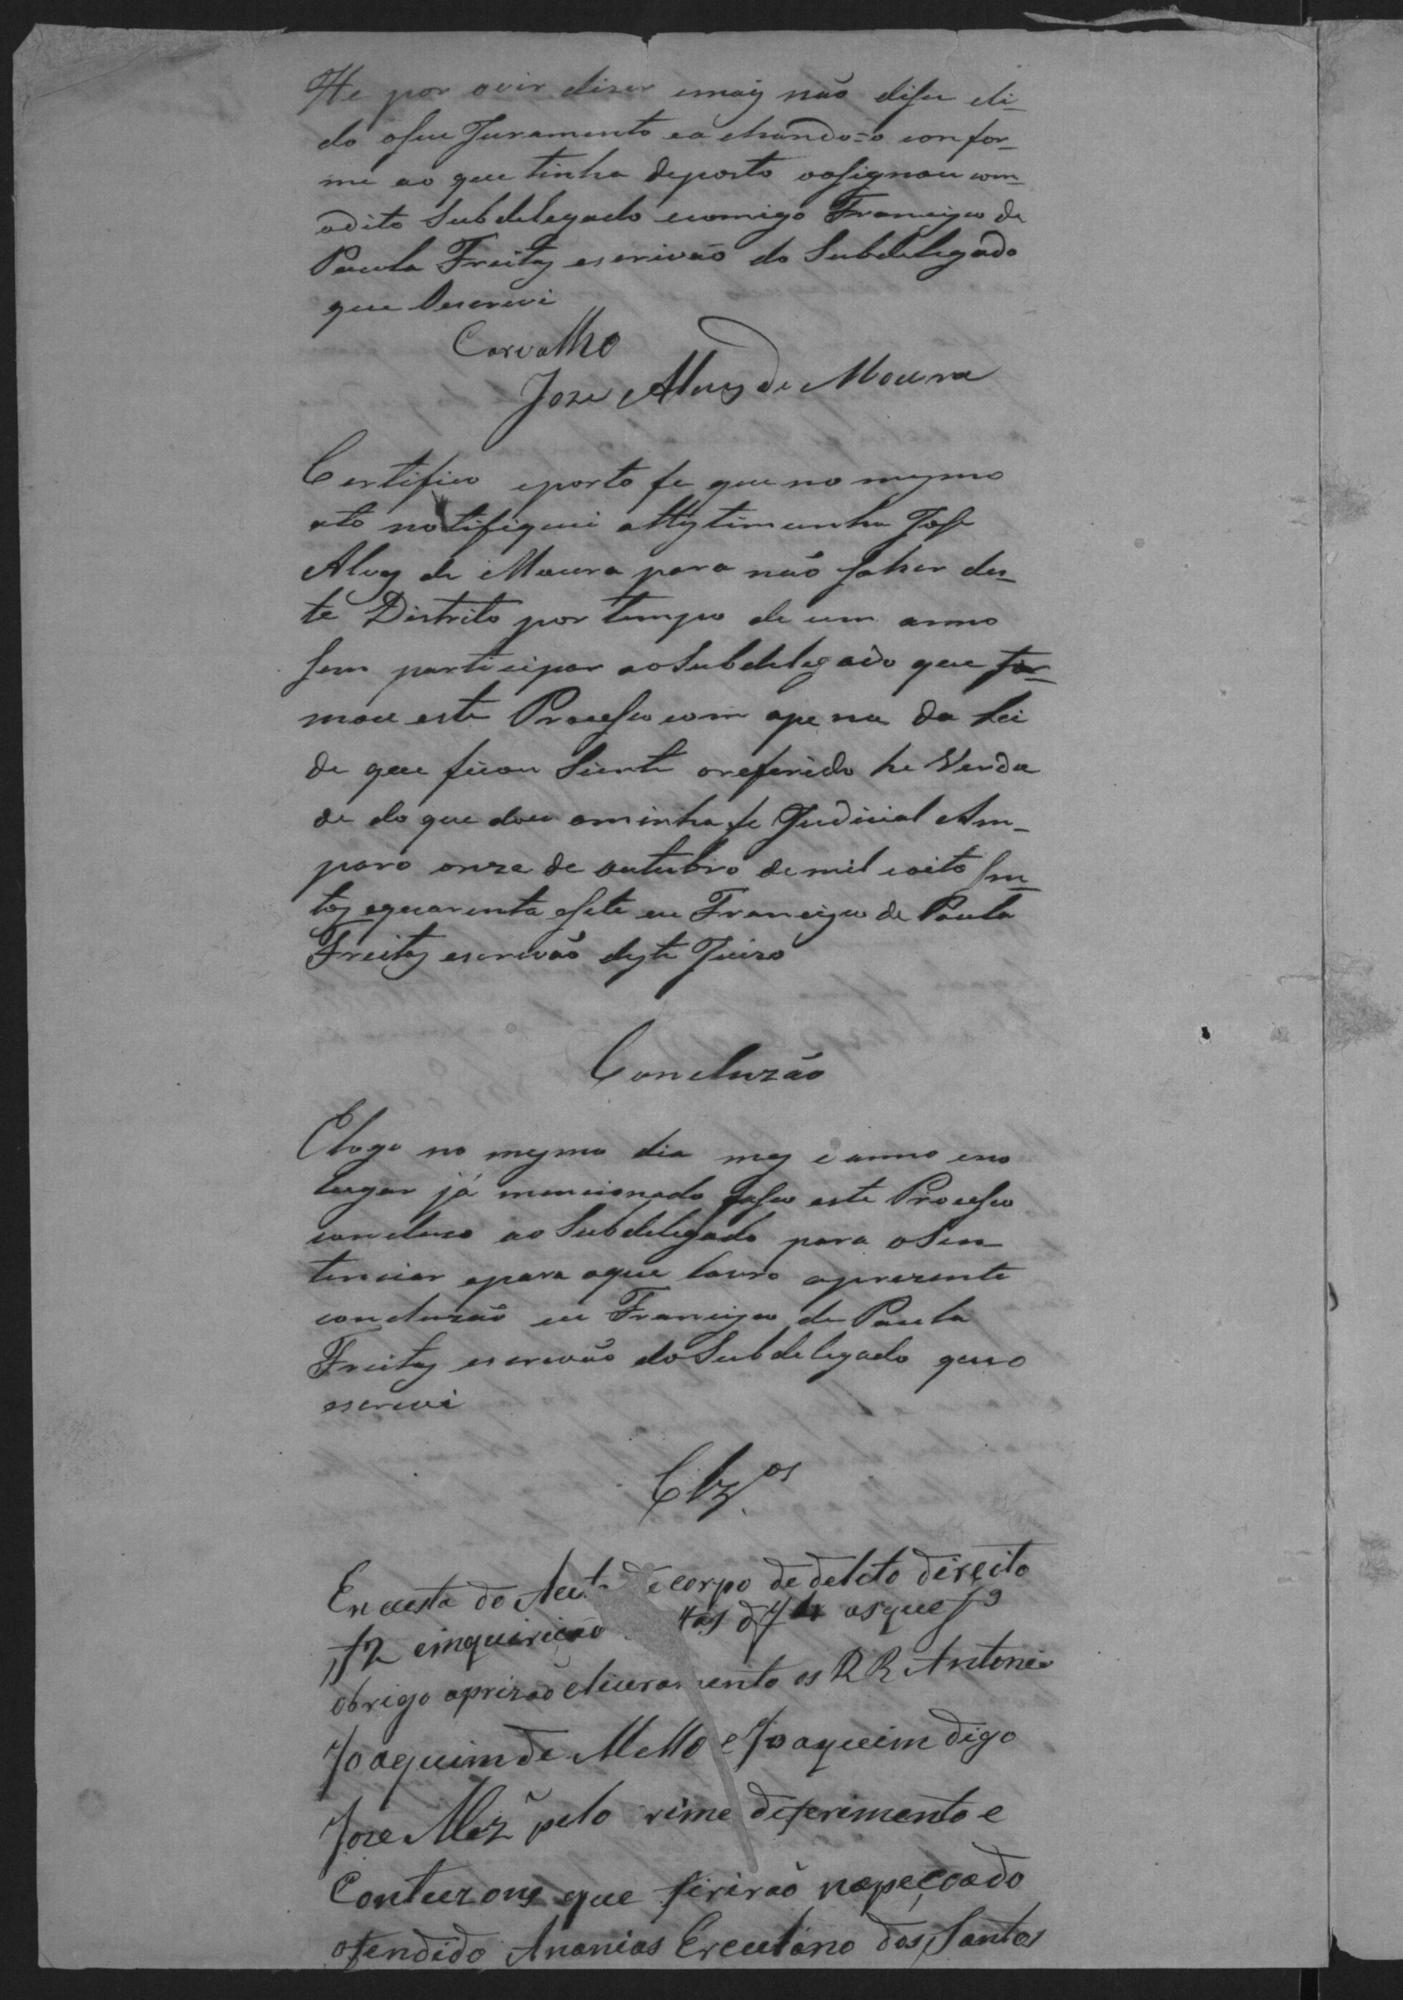 He por ovir diser emais não disse li-
do oseu Juramento ea chando=o confor-
me ao que tinha deposto oasignou com
odito Subdelegado ecomigo Francisco de
Paula Freitas escrivão do Subdelegado
que Oescrevi
Carvalho
Joze Alves de Moura
Certifico eporto fe que no mesmo
ato notifiquei attestimunha José
Alves de Moura para não saher des-
te Distrito por tempo de um anno
sem participar ao Subdelegado que for-
mou este Processo com apena da Lei
de que ficou Siente oreferido he Verda
de do que dou aminha fe Judicial Am-
paro onze de outubro de mil eoito sen-
tos equarenta esete eu Francisco de Paula
Freitas escrivão deste Juizo
Concluzão
Elogo no mesmo dia mes e anno eno
lugar já mencionado faso este Processo
concluzo ao Subdelegado para oSen
tenciar epara oque lavro aprezente
concluzão eu Francisco de Paula
Freitas escrivão do Subdelegado que o
escrevi
Clz.os
Em vista do Aut de corpo de delito direito
f2 einquirição tas df4 as que
obrigo aprizão elivramento os RR Antonio
Joaquim de Mello e Joaquim digo
Joze pelo rime deferimento e
Contuzons que firirão napeçoado
ofendido Ananias Ereculano dos Santos